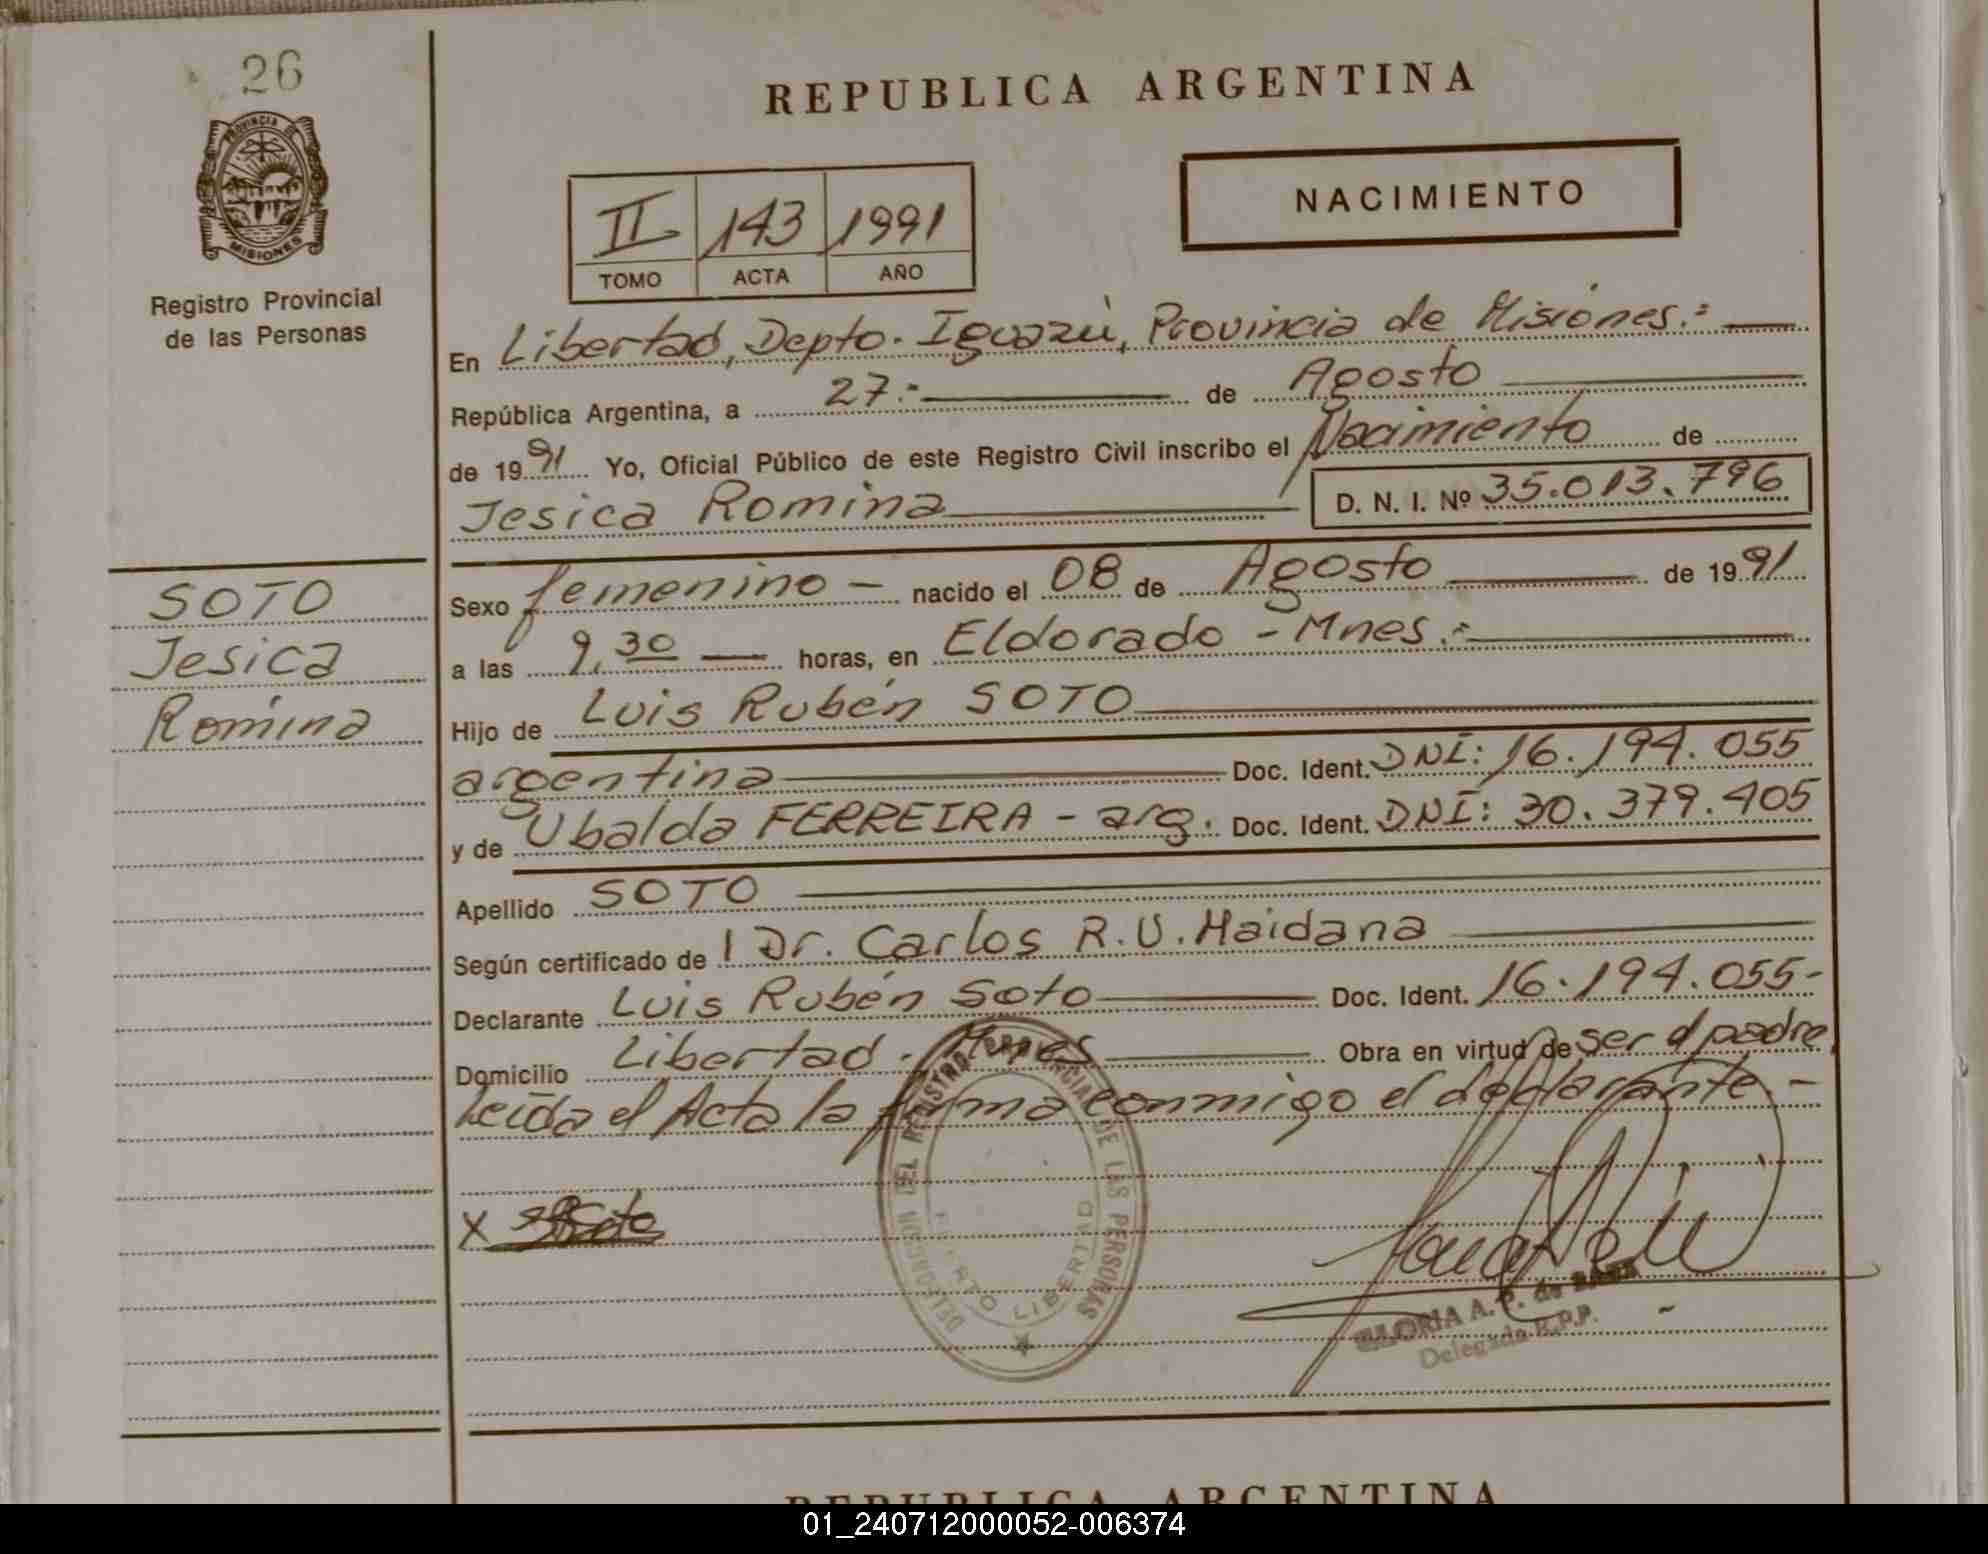 26
PROVINCIA DE
MISIONES
Registro Provincial
de las Personas
SOTO
Jesica
Romina
REPUBLICA ARGENTINA
NACIMIENTO
II 143 1991
TOMO ACTA AÑO
En Libertad, Depto. Iguazú, Provincia de Misiones.:
República Argentina, a 27.- de Agosto
de 1991 Yo, Oficial Público de este Registro Civil inscribo el Nacimiento de
Jesica Romina D. N. I. Nº 35.013.796
Sexo femenino - nacido el 08 de Agosto de 1991
a las 9,30 horas, en Eldorado - Mnes.:
Hijo de Luis Rubén SOTO
argentina Doc. Ident. DNI: 16.194.055
y de Ubalda FERREIRA - arg. Doc. Ident. DNI: 30.379.405
Apellido SOTO
Según certificado de l Dr. Carlos R.U. Maidana
Declarante Luis Rubén Soto Doc. Ident. 16.194.055-
Domicilio Libertad. Mnes Obra en virtud de ser el padre,
Leída el Acta la firma conmigo el declarante -
DELEGACION DEL REGISTRO PROVINCIAL DE LAS PERSONAS
PUERTO LIBERTAD
X Soto
GLORIA A. P. de
Delegada R.P.P.
REPUBLICA ARGENTINA
01_240712000052-006374